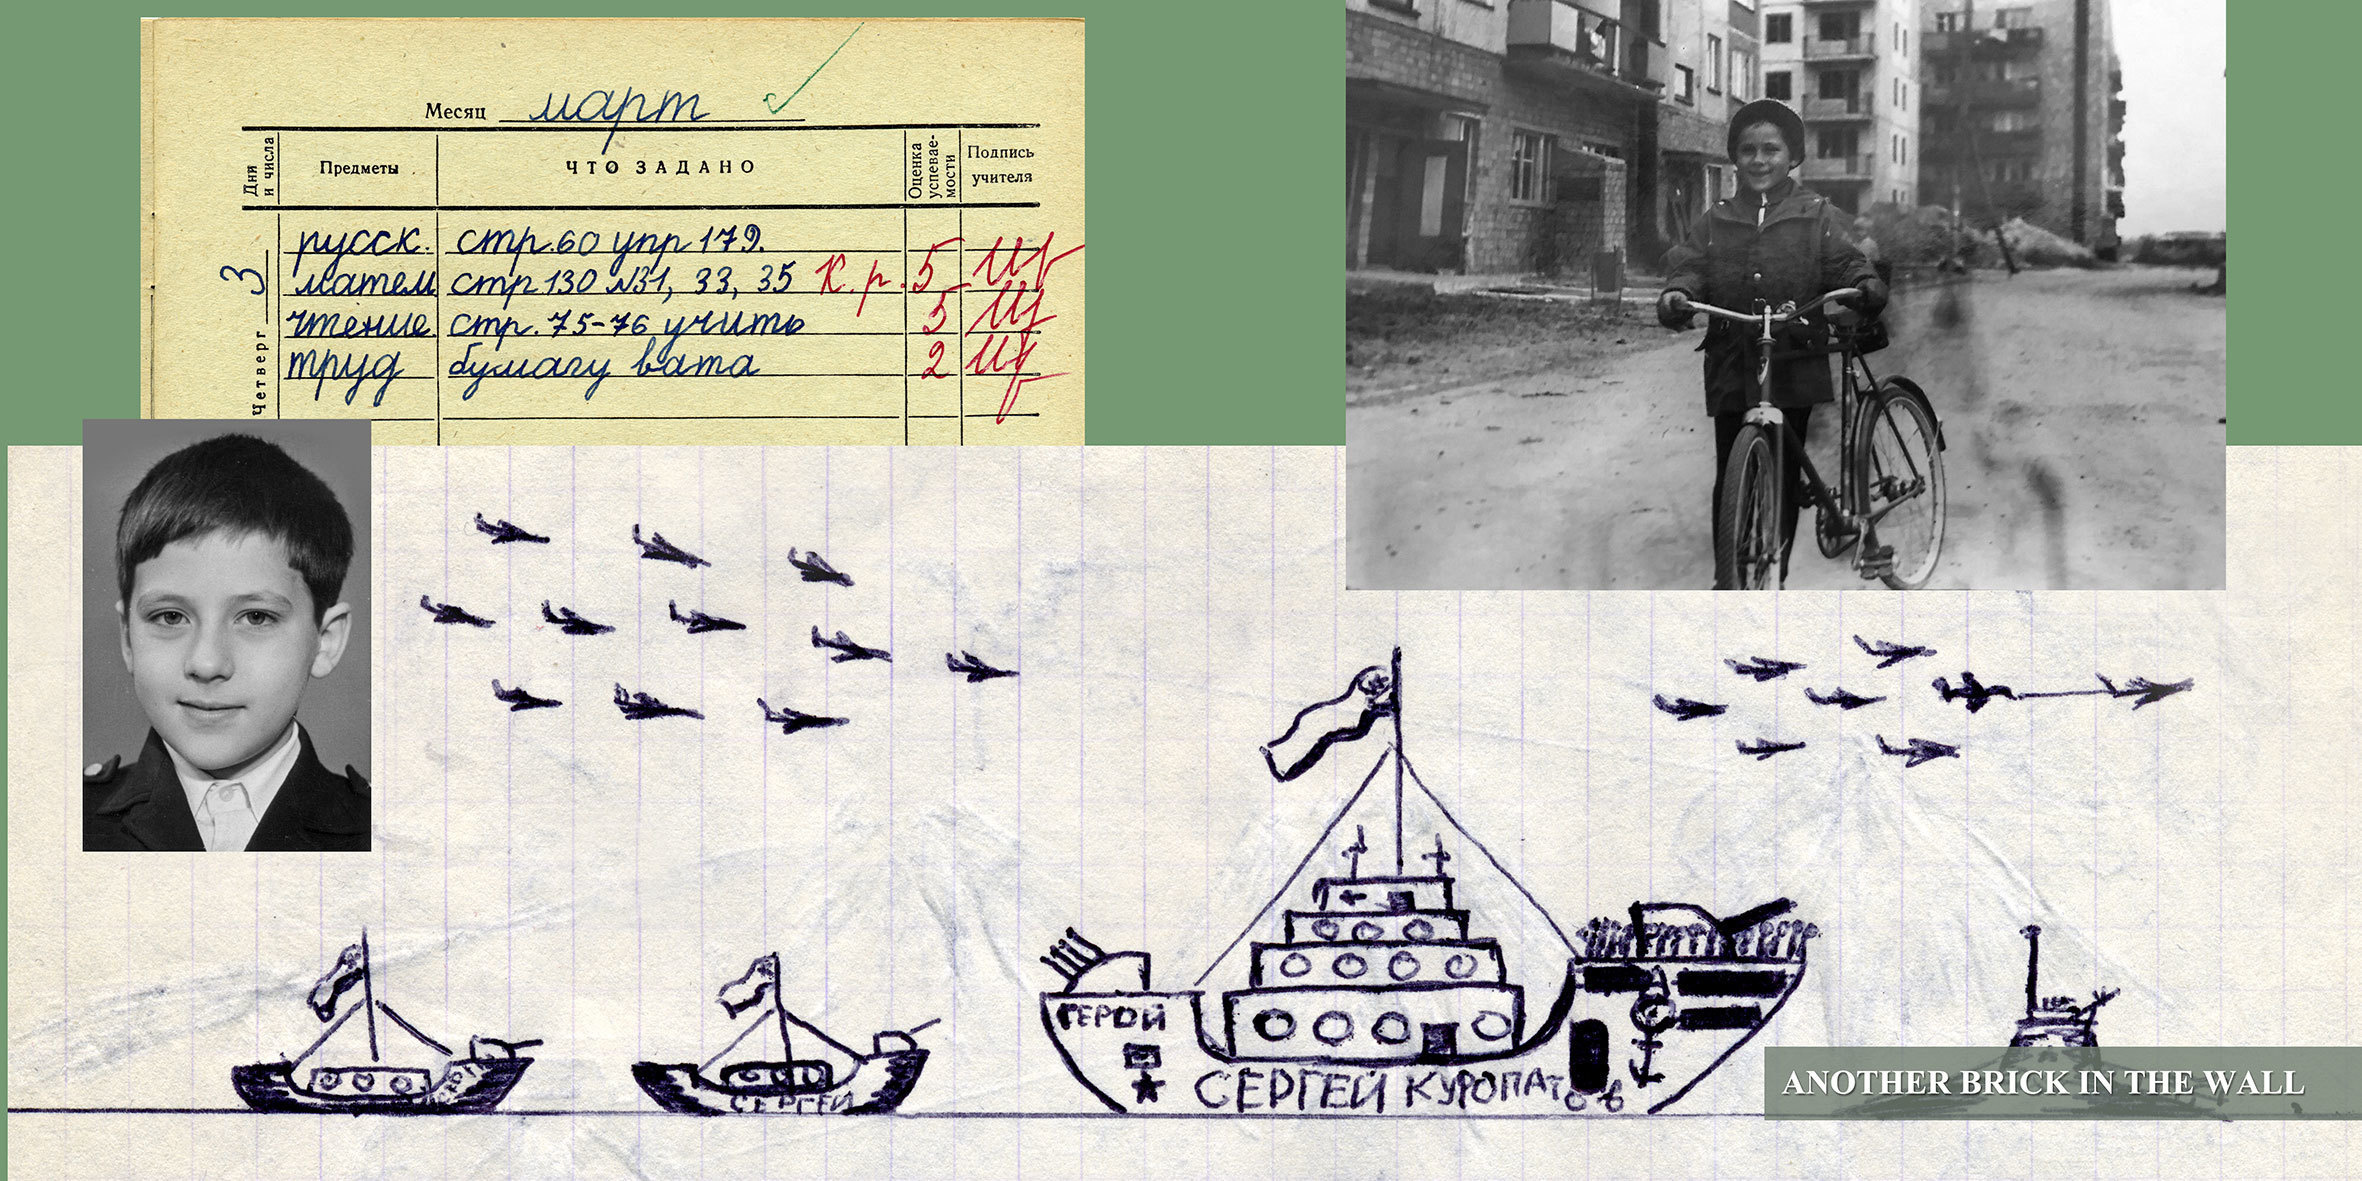 Месяц март
Дни и числа
Предметы
ЧТО ЗАДАНО
Оценка успевае-мости
Подпись учителя
Четверг 3
русск. стр.60 упр 179.
матем стр 130 №31, 33, 35 К.р. 5
чтение стр. 75-76 учить 5
труд бумагу вата 2
ГЕРОЙ
СЕРГЕЙ
СЕРГЕЙ КУРОПАТОВ
ANOTHER BRICK IN THE WALL